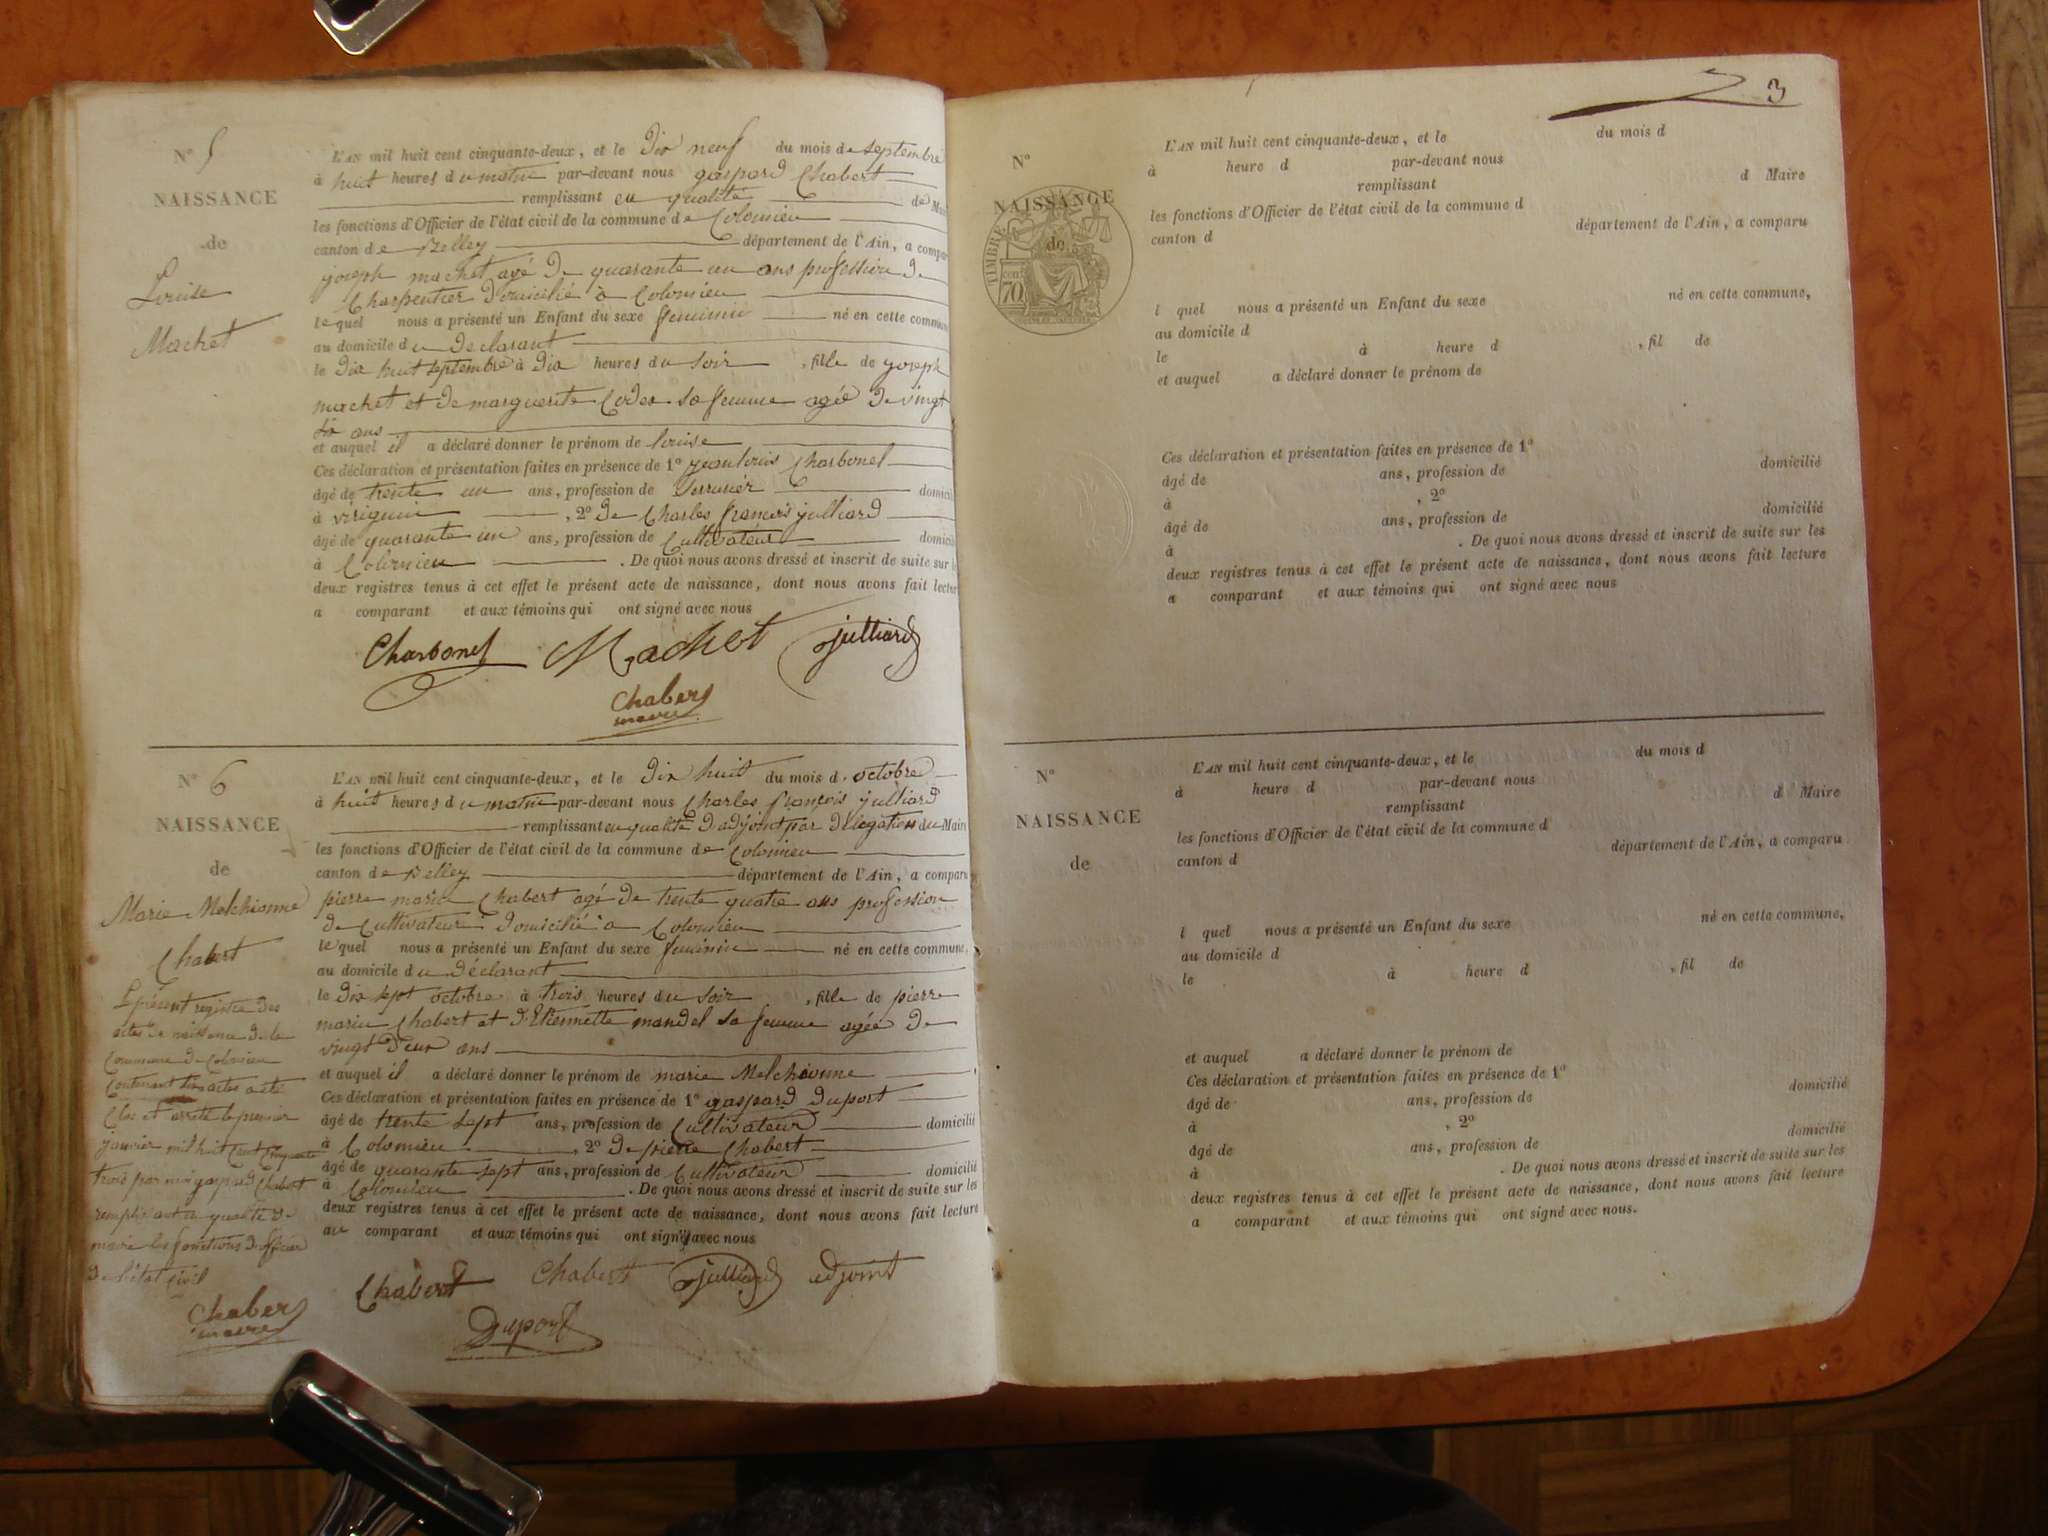 N° 5
NAISSANCE
de
Louise
Machet
L'AN mil huit cent cinquante-deux, et le Dix neuf du mois de septembre
à huit heures du matin par-devant nous gaspard Chabert
remplissant en qualité de Mai
les fonctions d'Officier de l'état civil de la commune de Colomieu
canton de Belley département de l'Ain, a compar
joseph machet agé de quarante un ans profession de
Charpentier Domicilié à Colomieu
lequel nous a présenté un Enfant du sexe feminin né en cette commune
au domicile du Declarant
le Dix huit septembre à Dix heures du soir, fille de joseph
machet et de marguerite Codex sa femme agée de vingt
six ans
et auquel il a déclaré donner le prénom de louise
Ces déclaration et présentation faites en présence de 1° jean louis Charbonel
âgé de trente un ans, profession de Serrurier domicili
à virignin, 2° de Charles francois julliard
âgé de quarante un ans, profession de Cultivateur domicili
à Colomieu. De quoi nous avons dressé et inscrit de suite sur le
deux registres tenus à cet effet le présent acte de naissance, dont nous avons fait lectur
a comparant et aux témoins qui ont signé avec nous
Charbonel Machet julliard
Chabert
maire
N° 6
NAISSANCE
de
Marie Melchionne
Chabert
L'AN mil huit cent cinquante-deux, et le Dix huit du mois d. octobre
à huit heures du matin par-devant nous Charles françois julliard
remplissant en qualité d'adjoint par délégation du Maire
les fonctions d'Officier de l'état civil de la commune de Colomieu
canton de Belley département de l'Ain, a comparu
pierre marin Chabert agé de trente quatre ans profession
de Cultivateur Domicilié à Colomieu
lequel nous a présenté un Enfant du sexe feminin né en cette commune,
au domicile du déclarant
le Dix sept octobre à trois heures du soir, fille de pierre
marin Chabert et d'Etiennette mandel sa femme agée de
vingt deux ans
et auquel il a déclaré donner le prénom de marie Melchionne
Ces déclaration et présentation faites en présence de 1° gaspard Duport
âgé de trente sept ans, profession de Cultivateur domicilié
à Colomieu, 2° de pierre Chabert
âgé de quarante sept ans, profession de Cultivateur domicilié
à Colomieu. De quoi nous avons dressé et inscrit de suite sur les
deux registres tenus à cet effet le présent acte de naissance, dont nous avons fait lecture
au comparant et aux témoins qui ont signé avec nous
Chabert Chabert julliard adjoint
Duport
Le présent registre des
actes de naissance de la
Commune de Colomieu
Contenant six actes a été
Clos et arrêté le premier
janvier mil huit Cent Cinquante
trois par moi gaspard Chabert
remplissant en qualité de
maire les fonctions d'officier
de l'état Civil
Chabert
maire
3
N°
NAISSANCE
de
TIMBRE
70
L'AN mil huit cent cinquante-deux, et le du mois d
à heure d par-devant nous
remplissant d Maire
les fonctions d'Officier de l'état civil de la commune d
canton d département de l'Ain, a comparu
l quel nous a présenté un Enfant du sexe né en cette commune,
au domicile d
le à heure d , fil de
et auquel a déclaré donner le prénom de
Ces déclaration et présentation faites en présence de 1°
âgé de ans, profession de domicilié
à , 2°
âgé de ans, profession de domicilié
à . De quoi nous avons dressé et inscrit de suite sur les
deux registres tenus à cet effet le présent acte de naissance, dont nous avons fait lecture
a comparant et aux témoins qui ont signé avec nous
N°
NAISSANCE
de
L'AN mil huit cent cinquante-deux, et le du mois d
à heure d par-devant nous
remplissant d Maire
les fonctions d'Officier de l'état civil de la commune d
canton d département de l'Ain, a comparu
l quel nous a présenté un Enfant du sexe né en cette commune,
au domicile d
le à heure d , fil de
et auquel a déclaré donner le prénom de
Ces déclaration et présentation faites en présence de 1°
âgé de ans, profession de domicilié
à , 2°
âgé de ans, profession de domicilié
à . De quoi nous avons dressé et inscrit de suite sur les
deux registres tenus à cet effet le présent acte de naissance, dont nous avons fait lecture
a comparant et aux témoins qui ont signé avec nous.